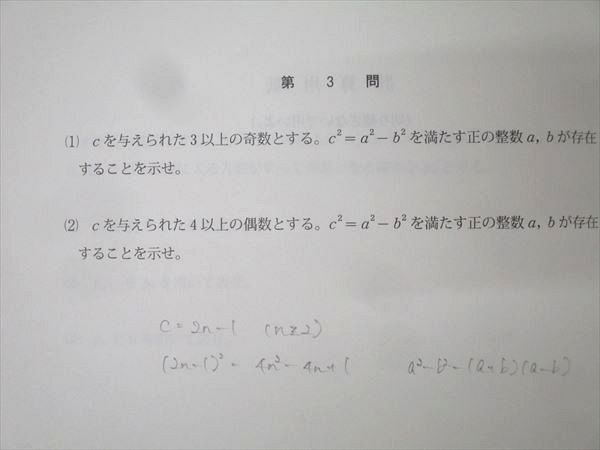 第 3 問
(1) cを与えられた3以上の奇数とする。c²=a²-b²を満たす正の整数a, bが存在
することを示せ。
(2) cを与えられた4以上の偶数とする。c²=a²-b²を満たす正の整数a, bが存在
することを示せ。
C = 2n-1 (n≥2)
(2n-1)² = 4n²-4n+1 a²-b²=(a+b)(a-b)